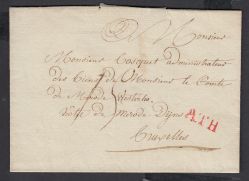 A Monsieur
Monsieur Cocquet administrateur
des biens de Monsieur le Comte
de Merode Westerloo
de merode
ATH
Bruxelles